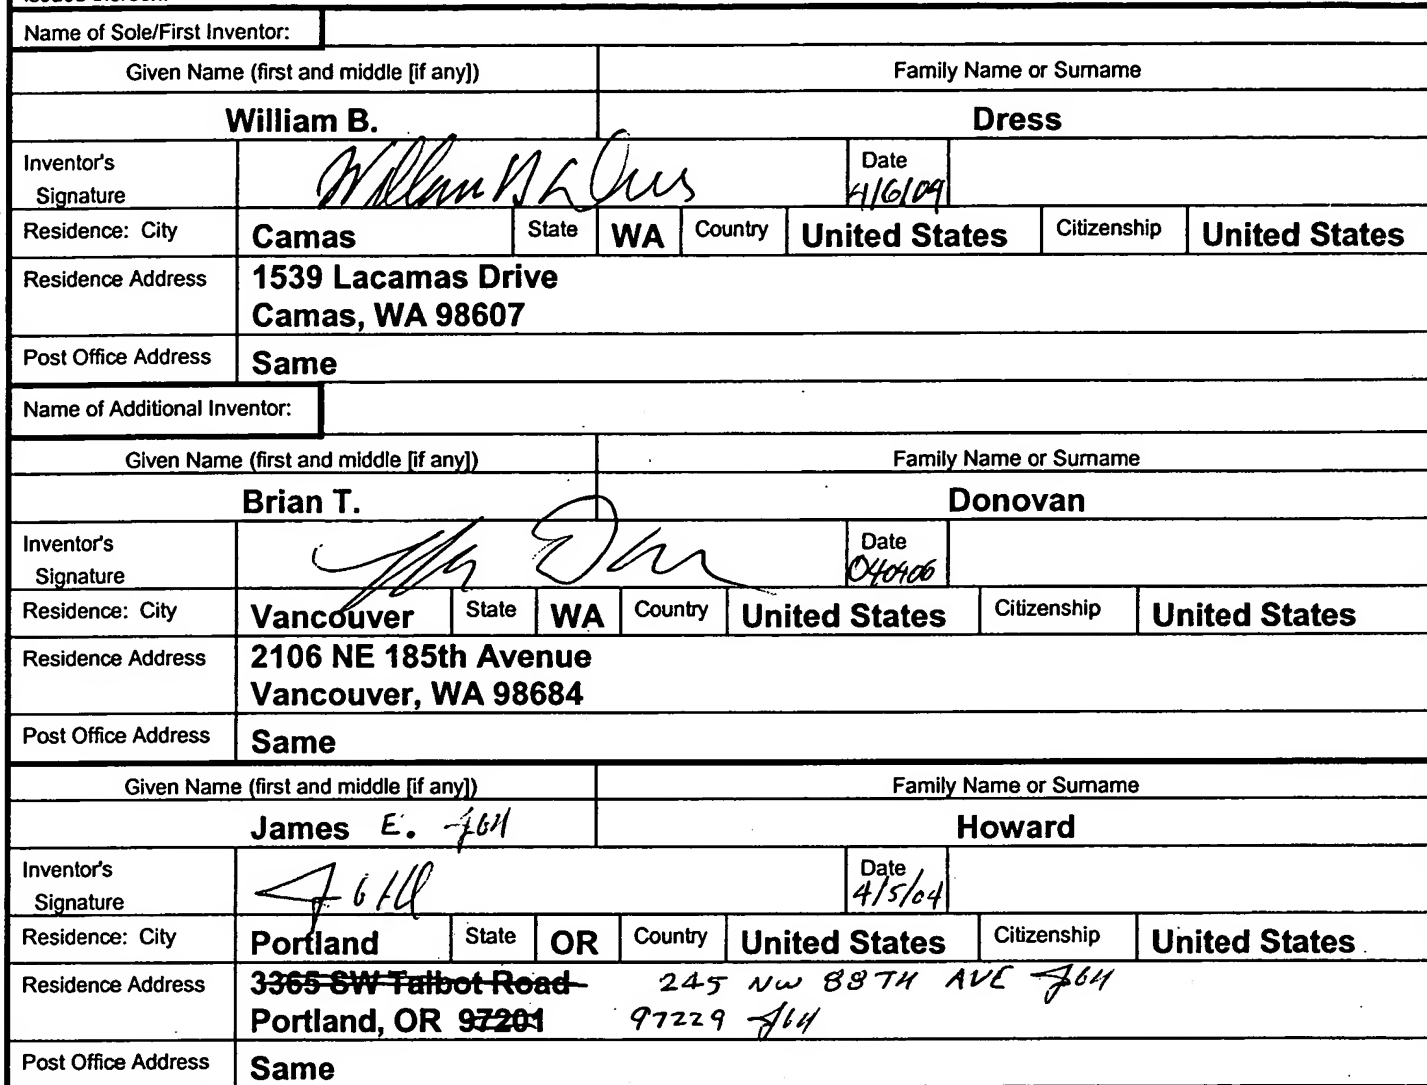 Name of Sole/First Inventor:
Given Name (first and middle [if any]) Family Name or Surname
William B. Dress
Inventor's Signature Date 4/6/04
Residence: City Camas State WA Country United States Citizenship United States
Residence Address 1539 Lacamas Drive
Camas, WA 98607
Post Office Address Same
Name of Additional Inventor:
Given Name (first and middle [if any]) Family Name or Surname
Brian T. Donovan
Inventor's Signature Date 040406
Residence: City Vancouver State WA Country United States Citizenship United States
Residence Address 2106 NE 185th Avenue
Vancouver, WA 98684
Post Office Address Same
Given Name (first and middle [if any]) Family Name or Surname
James E. Howard
Inventor's Signature Date 4/5/04
Residence: City Portland State OR Country United States Citizenship United States
Residence Address 3365 SW Talbot Road 245 NW 88TH AVE
Portland, OR 97201 97229
Post Office Address Same